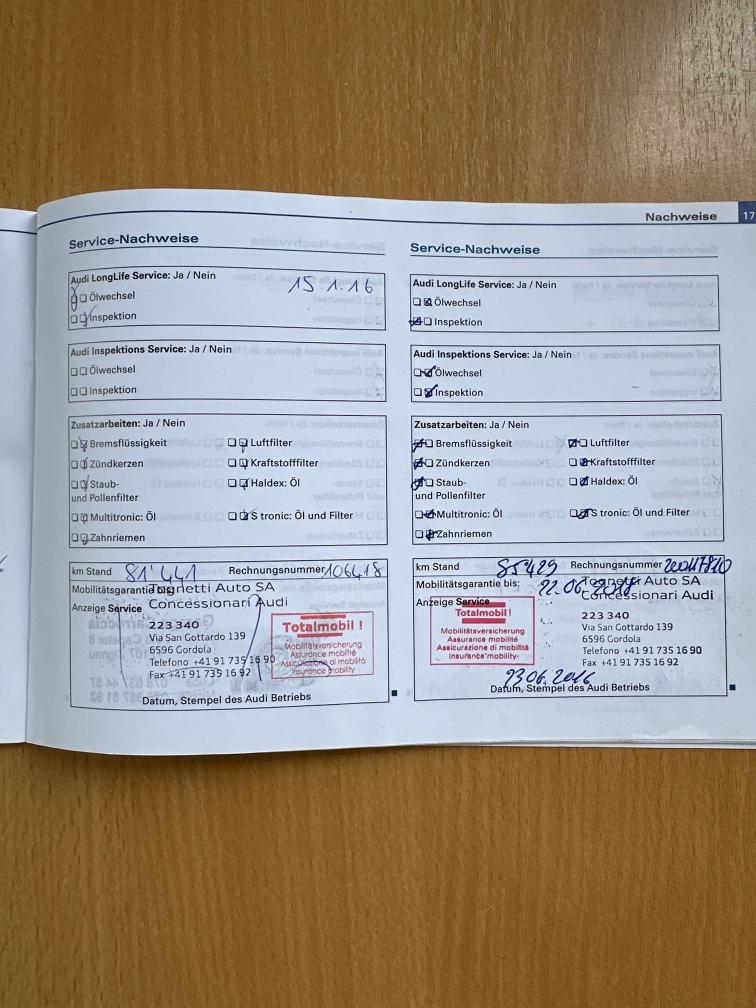 Nachweise 17
Service-Nachweise
Audi LongLife Service: Ja / Nein
15 1.16
Ölwechsel
Inspektion
Audi Inspektions Service: Ja / Nein
Ölwechsel
Inspektion
Zusatzarbeiten: Ja / Nein
Bremsflüssigkeit Luftfilter
Zündkerzen Kraftstofffilter
Staub- Haldex: Öl
und Pollenfilter
Multitronic: Öl S tronic: Öl und Filter
Zahnriemen
km Stand 81'441 Rechnungsnummer 106418
Mobilitätsgarantie Tognetti Auto SA
Anzeige Service Concessionari Audi
223 340
Via San Gottardo 139
6596 Gordola
Telefono +41 91 735 16 90
Fax +41 91 735 16 92
Totalmobil !
Mobilitätsversicherung
Assurance mobilité
Assicurazione di mobilità
Insurance mobility
Datum, Stempel des Audi Betriebs
Service-Nachweise
Audi LongLife Service: Ja / Nein
Ölwechsel
Inspektion
Audi Inspektions Service: Ja / Nein
Ölwechsel
Inspektion
Zusatzarbeiten: Ja / Nein
Bremsflüssigkeit Luftfilter
Zündkerzen Kraftstofffilter
Staub- Haldex: Öl
und Pollenfilter
Multitronic: Öl S tronic: Öl und Filter
Zahnriemen
km Stand 85429 Rechnungsnummer
Mobilitätsgarantie bis: Tognetti Auto SA
Anzeige Service Concessionari Audi
223 340
Via San Gottardo 139
6596 Gordola
Telefono +41 91 735 16 90
Fax +41 91 735 16 92
Totalmobil !
Mobilitätsversicherung
Assurance mobilité
Assicurazione di mobilità
Insurance mobility
23.06.2016
Datum, Stempel des Audi Betriebs